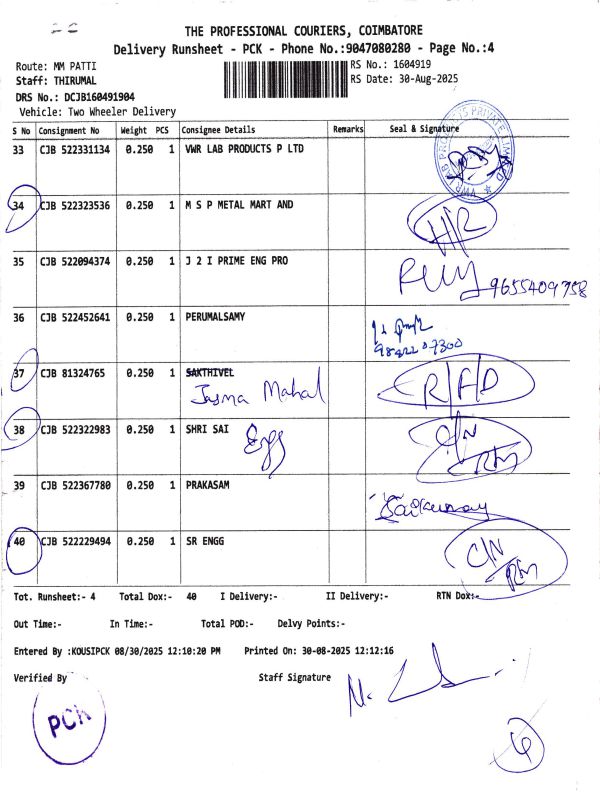 THE PROFESSIONAL COURIERS, COIMBATORE
Delivery Runsheet - PCK - Phone No.:9047080280 - Page No.:4
Route: MM PATTI RS No.: 1604919
Staff: THIRUMAL RS Date: 30-Aug-2025
DRS No.: DCJB160491904
Vehicle: Two Wheeler Delivery
S No Consignment No Weight PCS Consignee Details Remarks Seal & Signature
33 CJB 522331134 0.250 1 VWR LAB PRODUCTS P LTD
VWR LAB PRODUCTS PRIVATE LIMITED
34 CJB 522323536 0.250 1 M S P METAL MART AND
H/R
35 CJB 522094374 0.250 1 J 2 I PRIME ENG PRO
9655409758
36 CJB 522452641 0.250 1 PERUMALSAMY
98422 07300
37 CJB 81324765 0.250 1 SAKTHIVEL R/F/D
Jasma Mahal
38 CJB 522322983 0.250 1 SHRI SAI Engg C/N
RTN
39 CJB 522367780 0.250 1 PRAKASAM
40 CJB 522229494 0.250 1 SR ENGG C/N
RTN
Tot. Runsheet:- 4 Total Dox:- 40 I Delivery:- II Delivery:- RTN Dox:-
Out Time:- In Time:- Total POD:- Delvy Points:-
Entered By :KOUSIPCK 08/30/2025 12:10:20 PM Printed On: 30-08-2025 12:12:16
Verified By Staff Signature
PCK
6